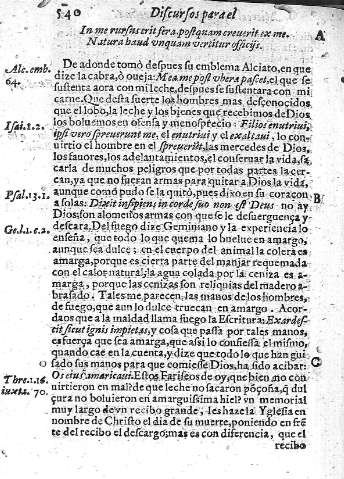 540 Discursos para el
In me rursus erit fera, postquam creuerit ex me.
Natura haud unquam vertitur officijs.
A
De adonde tomò despues su emblema Alciato, en que
Alc. emb. 64.
dize la cabra, ò oueja: Mea me post vbera pascet, el que se
sustenta aora con mi leche, despues se sustentara con mi
carne. Que desta suerte los hombres, mas desconocidos
que el lobo, la leche y los bienes que recebimos de Dios
los boluemos en ofensa y menosprecio: Filios enutriui,
Isai. 1. 2.
ipsi vero spreuerunt me, el enutriui y el exaltaui, lo con-
uirtio el hombre en el spreuerut, las mercedes de Dios,
los fauores, los adelantamientos, el conseruar la vida, sa
carla de muchos peligros que por todas partes la cer-
can, ya que no fueran armas para quitar a Dios la vida,
aunque como pudo se la quitò, pues dixo en su coraçon
Psal. 13. 1.
a solas: Dixit insipiens in corde suo non est Deus no ay
B
Dios; son alomenos armas con que se le desuerguença y
descara. Del fuego dize Geminiano y la experiencia lo
Ge. l. 1. c. 2.
enseña, que todo lo que quema lo buelue en amargo,
aunque sea dulce; en el cuerpo del animal la colera es
amarga, porque es cierta parte del manjar requemada
con el calor natural; la agua colada por la ceniza es a-
marga, porque las cenizas son reliquias del madero a-
brasado. Tales me parecen las manos de los hombres,
de fuego, que aun lo dulce truecan en amargo. Acor-
daos que a la maldad llama fuego la Escritura: Exarde-
stis sicut ignis impietas, y cosa que passa por tales manos,
es fuerça que sea amarga, que assi lo confiessa el mismo,
quando cae en la cuenta, y dize que todo lo que han gui
C
sado sus manos para que comiesse Dios, ha sido acibar:
Os eius amaricaui. Estos Fariseos de oy, que bien no con
Thre. 1. 16.
iuxta. 70.
uirtieron en mal? de que leche no sacaron poçoña, q̃ dul
çura no boluieron en amarguissima hiel? vn memorial
muy largo de vn recibo grande, les haze la Yglesia en
nombre de Christo el dia de su muerte, poniendo en fre
te del recibo el descargo; mas es con diferencia, que el
recibo